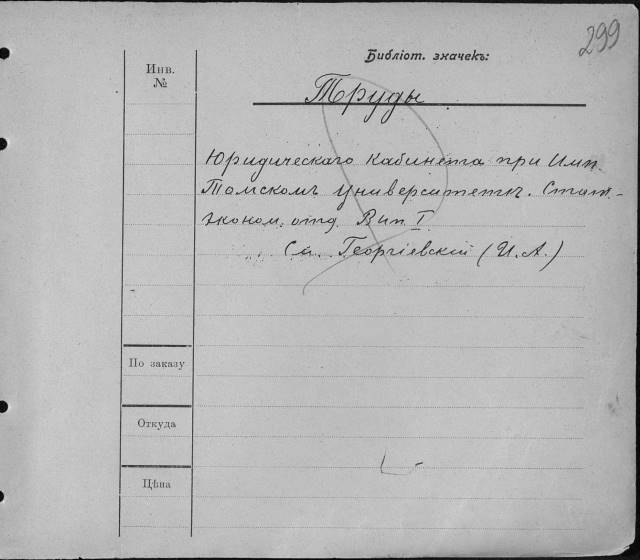 299
Библіот. значекъ:
Инв.
№
Труды
Юридическаго Кабинета при Имп.
Томскомъ Университетѣ. Стат.-
эконом. отд. Вып. I.
См. Георгіевскій (И. А.)
По заказу
Откуда
Цѣна